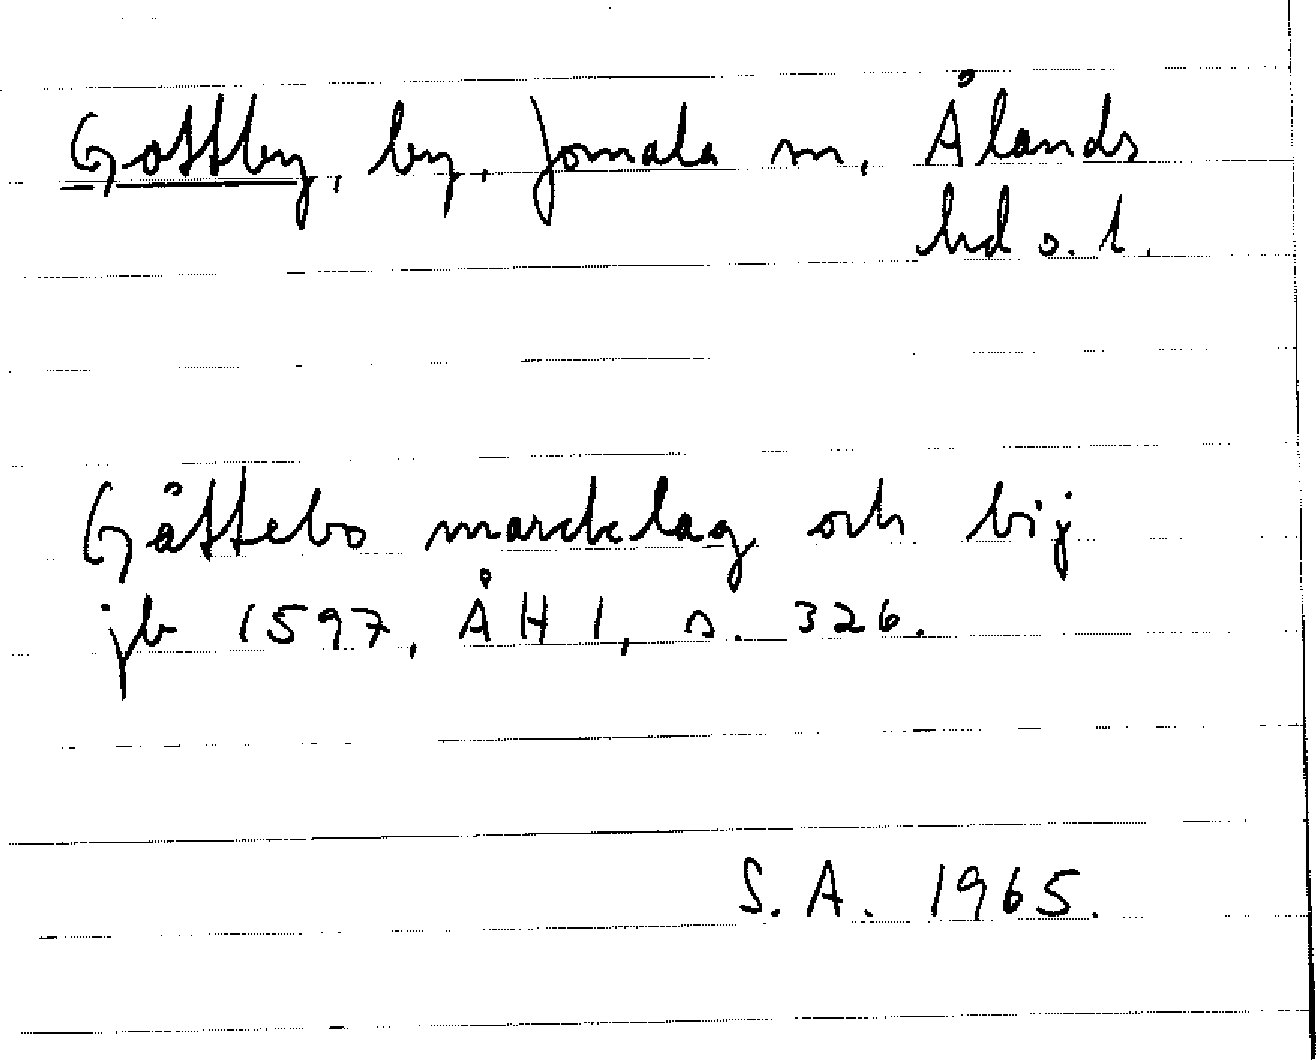 Gottby, by, Jomala sn, Ålands
hd o. l.
Gåttebo marcklag och bij
jb 1597, ÅH 1, s. 326.
S. A. 1965.